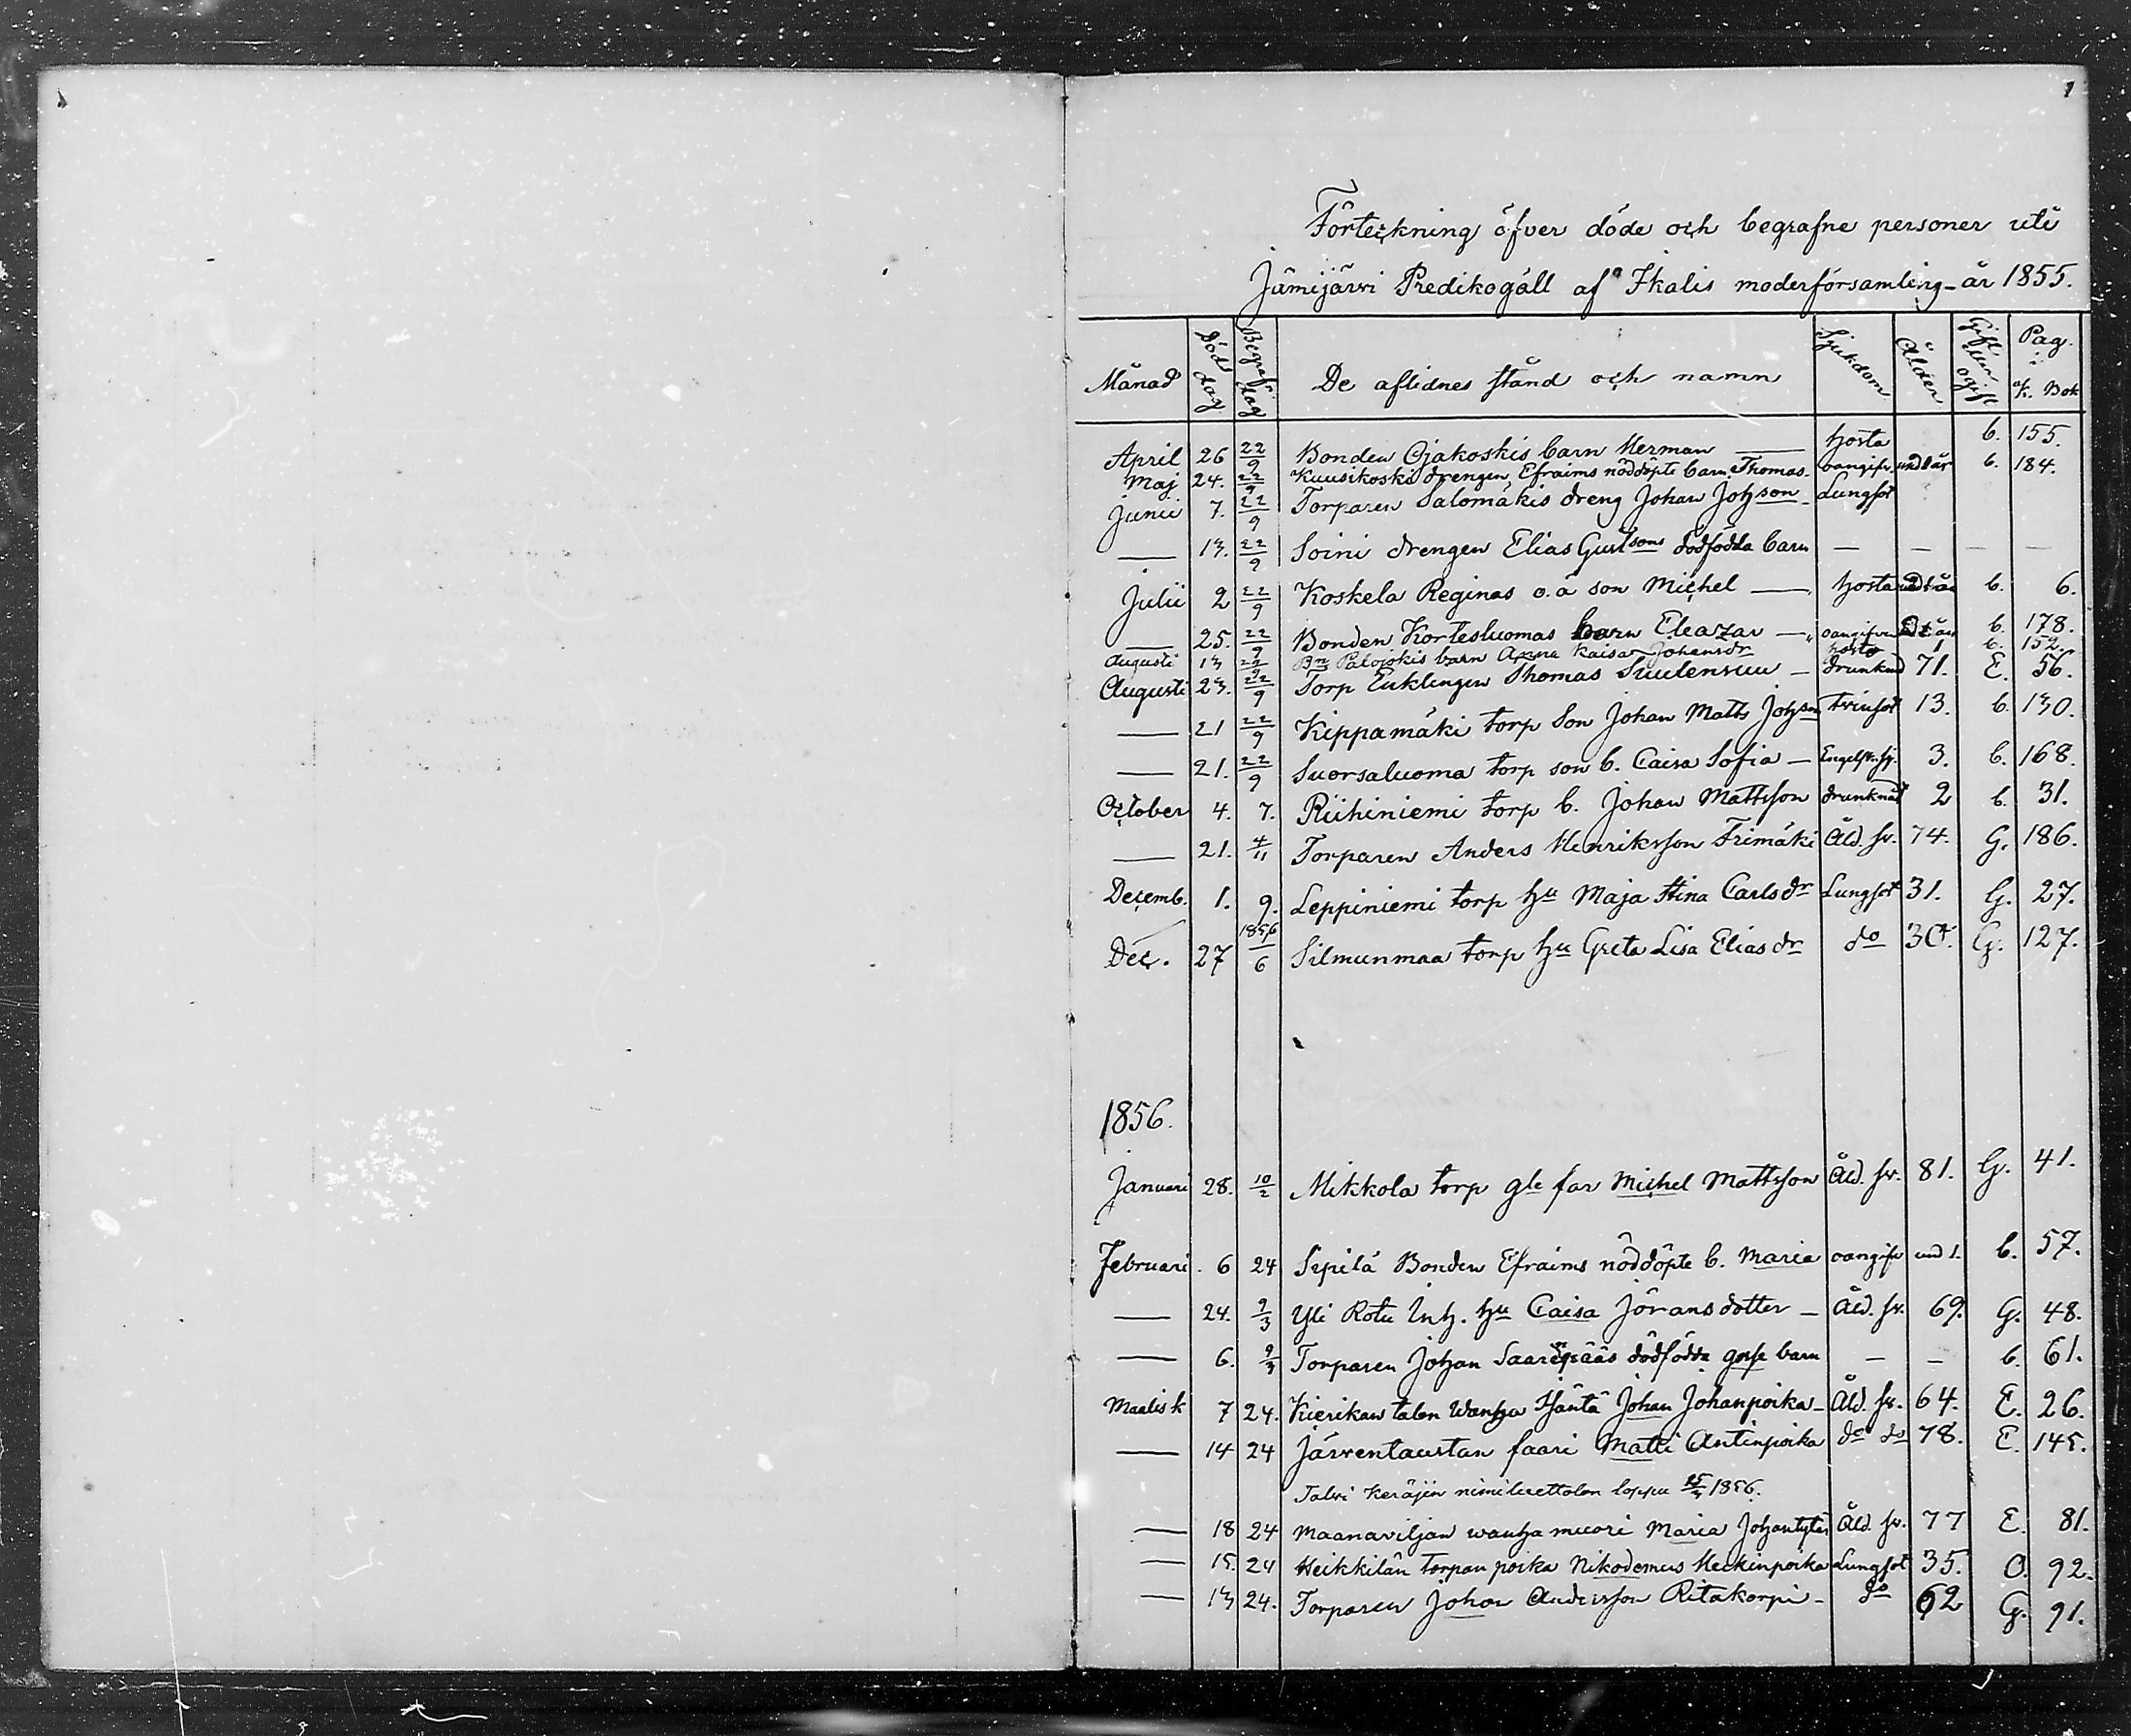 1
Förteckning öfver döde och begrafne personer uti
Jämijärvi Predikogäll af Ikalis moderförsamling år 1855.
Månad Döds dag Begrafn dag De aflidnes stånd och namn Sjukdom Ålder Gift eller ogift Pag. i K. Bok
April 26 22/9 Bonden Ojakoskis barn Herman — hosta b. 155.
Maj 24. 22/9 Kuusikoski drengen Efraims nöddöpte barn Thomas. oangifv. und 1 år b. 184.
Junii 7. 22/9 Torparen Salomäkis dreng Johan Johson - Lungsot
— 13. 22/9 Soini drengen Elias Gustsons dödfödda barn — — — —
Julii 2 22/9 Koskela Reginas o.ä son Michel — hosta und 1 år b. 6.
— 25. 22/9 Bonden Kortesluomas barn Eleazar — oangifven und 1 år b. 178.
Augusti 13 22/9 Bn Palojokis barn Anna Kaisa Johansdr hosta 1 b. 152.
Augusti 23. 22/9 Torp Enklingen Thomas Suulensuu - drunknad 71. E. 56.
— 21 22/9 Kippamäki torp Son Johan Matts Johson tvinsot 13. b. 130.
— 21. 22/9 Suorsaluoma torp son b. Caisa Sofia — Engelsk. sj. 3. b. 168.
October 4. 7. Riihiniemi torp b. Johan Mattsson drunknat 2 b. 31.
— 21. 4/11 Torparen Anders Henriksson Frimäki Åld. sv. 74. G. 186.
Decemb. 1. 9. Leppiniemi torp hu Maja Stina Carlsdr Lungsot 31. G. 27.
Dec. 27 1856/6 Silmunmaa torp hu Greta Lisa Eliasdr do 30. G. 127.
1856.
Januari 28. 10/2 Mikkola torp gle far Michel Mattsson Åld. sv. 81. G. 41.
Februari. 6 24 Sepilä Bonden Efraims nöddöpte b. Maria oangifv und 1. b. 57.
— 24. 9/3 Yli Rotu Inh. hu Caisa Jöransdotter — Åld. sv. 69. G. 48.
— 6. 9/3 Torparen Johan Saarepääs dödfödda gosse barn — — b. 61.
Maalisk 7 24. Kierikan talon Wanha Isäntä Johan Johanpoika - Åld. sv. 64. E. 26.
— 14 24 Järventaustan faari Matti Antinpoika do do 78. E. 145.
Talvi Keräjin nimiluettolon loppu 15/3 1856.
— 18 24 Maanaviljan wanha muori Maria Johantytär Åld. sv. 77 E. 81.
— 15. 24 Heikkilän torpan poika Nikodemus Heikinpoika Lungsot 35. O. 92.
— 13 24. Torparen Johan Andersson Ritakorpi - do 62 G. 91.